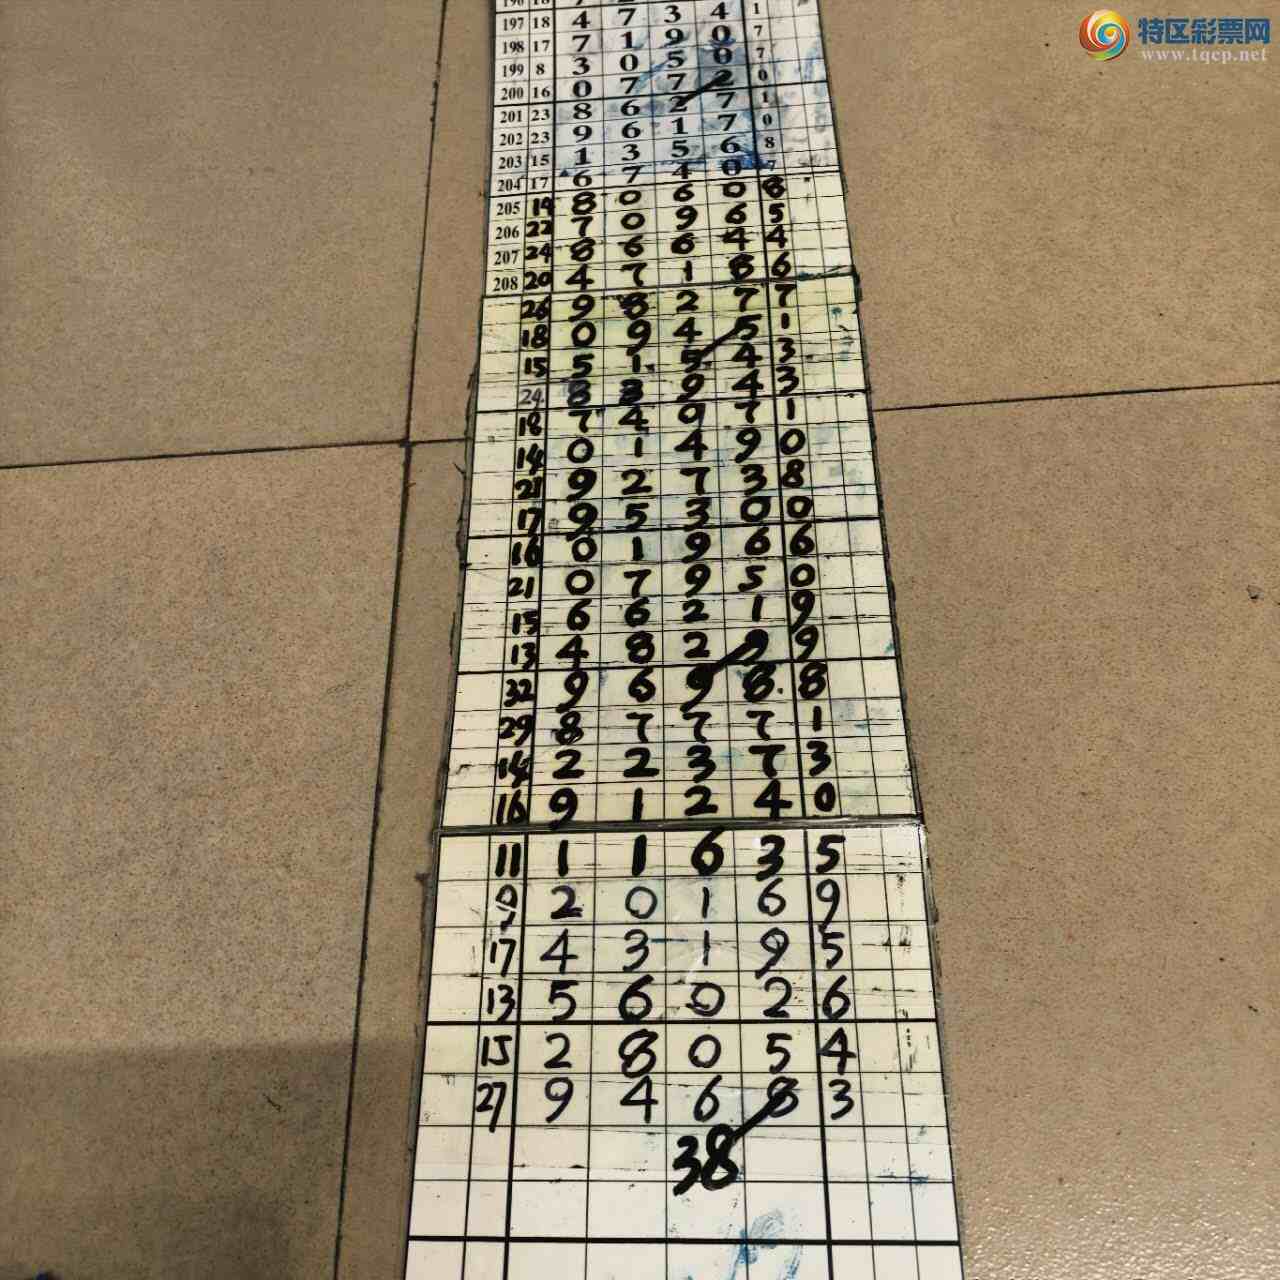 特区彩票网
www.tqcp.net
197 18 4 7 3 4 1
198 17 7 1 9 0 7
199 8 3 0 5 0 7
200 16 0 7 7 2 0
201 23 8 6 2 7 1
202 23 9 6 1 7 0
203 15 1 3 5 6 8
204 17 6 7 4 0 7
205 14 8 0 6 0 8
206 22 7 0 9 6 5
207 24 8 6 6 4 4
208 20 4 7 1 8 6
26 9 8 2 7 7
18 0 9 4 5 1
15 5 1 5 4 3
24 8 3 9 4 3
18 7 4 0 7 1
14 0 1 4 9 0
21 9 2 7 3 8
17 9 5 3 0 0
16 0 1 9 6 6
21 0 7 9 5 0
15 6 6 2 1 9
13 4 8 2 9
32 9 6 9 8 8
29 8 7 7 7 1
14 2 2 3 7 3
16 9 1 2 4 0
11 1 1 6 3 5
9 2 0 1 6 9
17 4 3 1 9 5
13 5 6 0 2 6
15 2 8 0 5 4
27 9 4 6 8 3
38